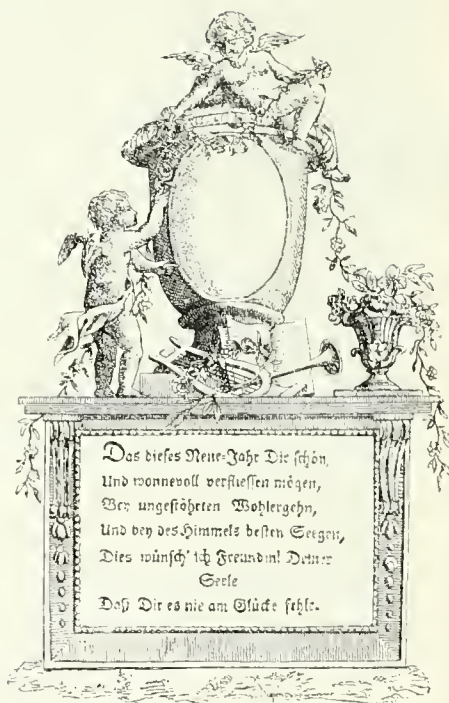 Das dieses Neue-Jahr Dir schön,
Und wonnevoll verfliessen mögen,
Bey ungestöhrten Wohlergehn,
Und bey des Himmels besten Seegen,
Dies wünsch' ich Freundin! Deiner
Seele
Daß Dir es nie am Glücke fehle.